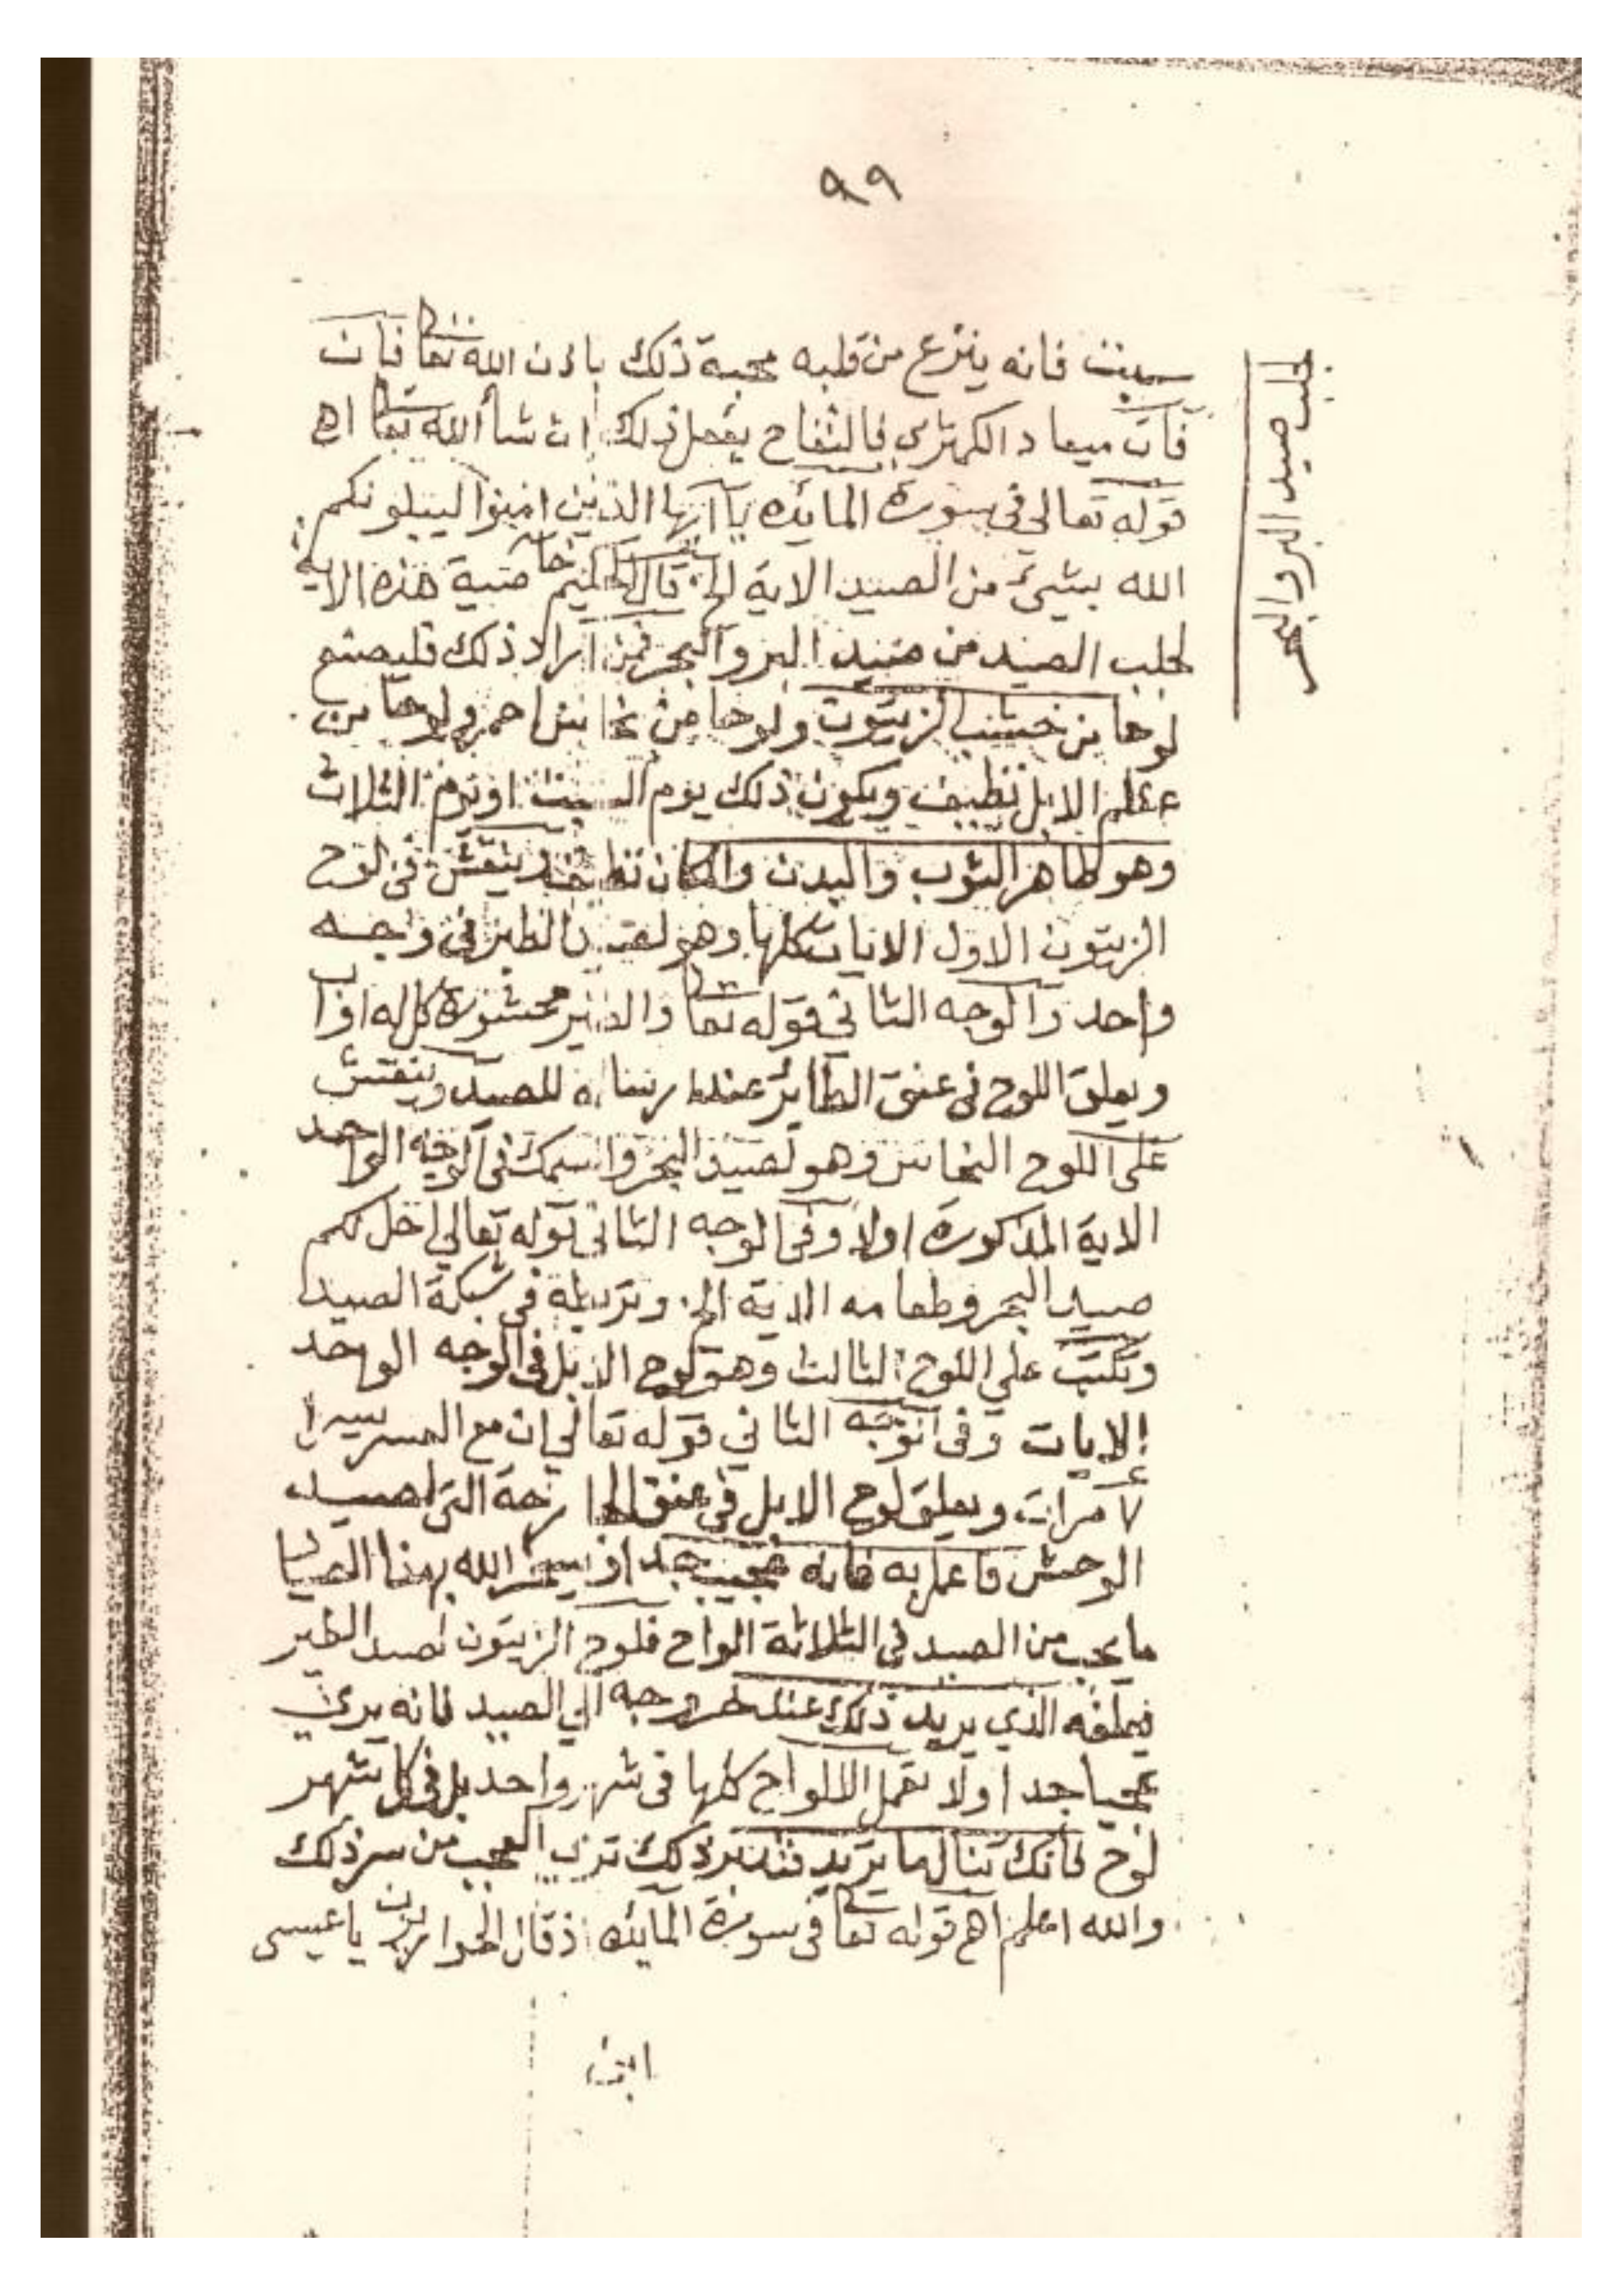 ٩٩
لجلب صيد البر والبحر
فانه ينزع من قلبه محبة ذلك باذن الله تعا فان
فات ميعاد الكمثري فالتفاح يفعل ذلك ان شا الله تعا اهـ
قوله تعالى في سورة المائده يا ايها الذين امنوا ليبلونكم
الله بشيئ من الصيد الاية الخ قال الحكيم خاصية هذه الاية
لجلب الصيد من صيد البر والبحر فمن اراد ذلك فليصنع
لوحا من خشب الزيتون ولوحا من نحاس احمر ولوحا من
عظم الابل نظيف ويكون ذلك يوم السبت او يوم الثلاث
وهو طاهر الثوب والبدن والمكان وينقش في لوح
الزيتون الاول الايات كلها وهو لصيد الطير في وجه
واحد والوجه الثاني قوله تعا والطير محشورة كل له اواب
ويعلق اللوح في عنق الطاير عند ارساله للصيد وينقش
على اللوح النحاس وهو لصيد البحر والسمك في الوجه الواحد
الاية المذكورة اولا وفي الوجه الثاني قوله تعالي احل لكم
صيد البحر وطعامه الاية الخ وتربطه في شبكة الصيد
وتكتب علي اللوح الثالث وهو لوح الابل في الوجه الواحد
الايات وفي الوجه الثاني قوله تعالي ان مع العسر يسرا
٧ مرات ويعلق لوح الابل في عنق الجارحة التي لصيد
الوحش فاعمل به فانه عجيب جدا الله بهذا
ما يحب من الصيد في الثلاثة الواح فلوح الزيتون لصيد الطير
الذي يريد ذلك عند خروجه الي الصيد فانه يري
عجبا جدا ولا تعمل الالواح كلها في شهر واحد بل في كل شهر
لوح فانك تنال ما تريد فتدبر ذلك تري العجب من سر ذلك
والله اعلم اهـ قوله تعا في سورة المائده اذ قال الحواريون يا عيسى
ابن